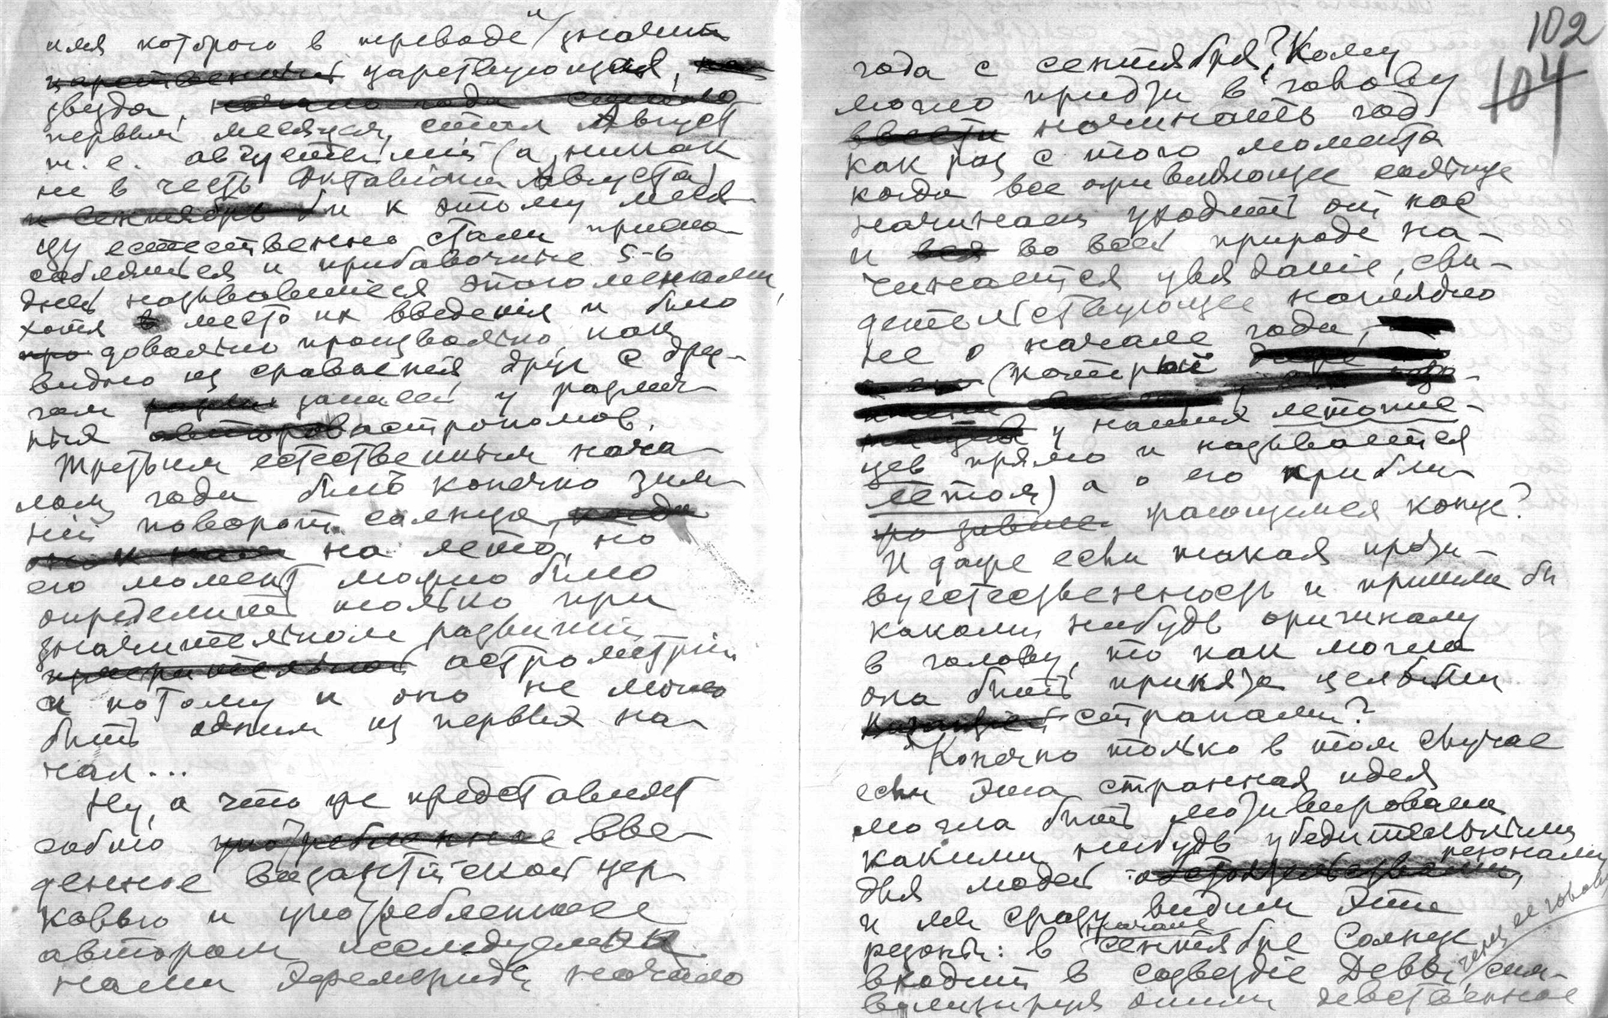 имя которого в переводе "/значит
царствующая,
звезда,
первым месяцем, стал Август
т. е. августейший (а никак
не в честь Октавиана Августа)
и к этому меся-
цу естественно стали приспо-
собляться и прибавочные 5-6
дней называвшиеся эпагоменами,
хотя место их введения и было
довольно произвольно, как
видно из сравнения друг с дру-
гом записей у различ-
ных астрономов.
Третьим естественным нача-
лом года был конечно зим-
ний поворот солнца,
на лето, но
его момент можно было
определить только при
значительном развитии
астрометрии
и потому и оно не могло
быть одним из первых на-
чал...
Ну, а что же представляет
собою вве-
денное византийской цер-
ковью и употребленное
автором исследуемых
нами Эфемерид начало
102
104
года с сентября? Кому
могло придти в голову
начинать год
как раз с того момента
когда все оживляющее солнце
начинает уходить от нас
и во всей природе на-
чинается увядание, сви-
детельствующее наглядно
не о начале года,
(который
у наших летопис-
цев прямо и называется
летом) а о его приближ-
ающемся конце?
И даже если такая проти-
вуестественность и пришла бы
какому нибудь оригиналу
в голову, то как могла
она быть принята целыми
странами?
Конечно только в том случае
если эта странная идея
могла быть мотивирована
какими нибудь убедительными
для людей резонами,
и мы сразу видим эти
резоны: в начале сентябре Солнце
входит в созвездие Девы, сим-
волизируя этим девственное